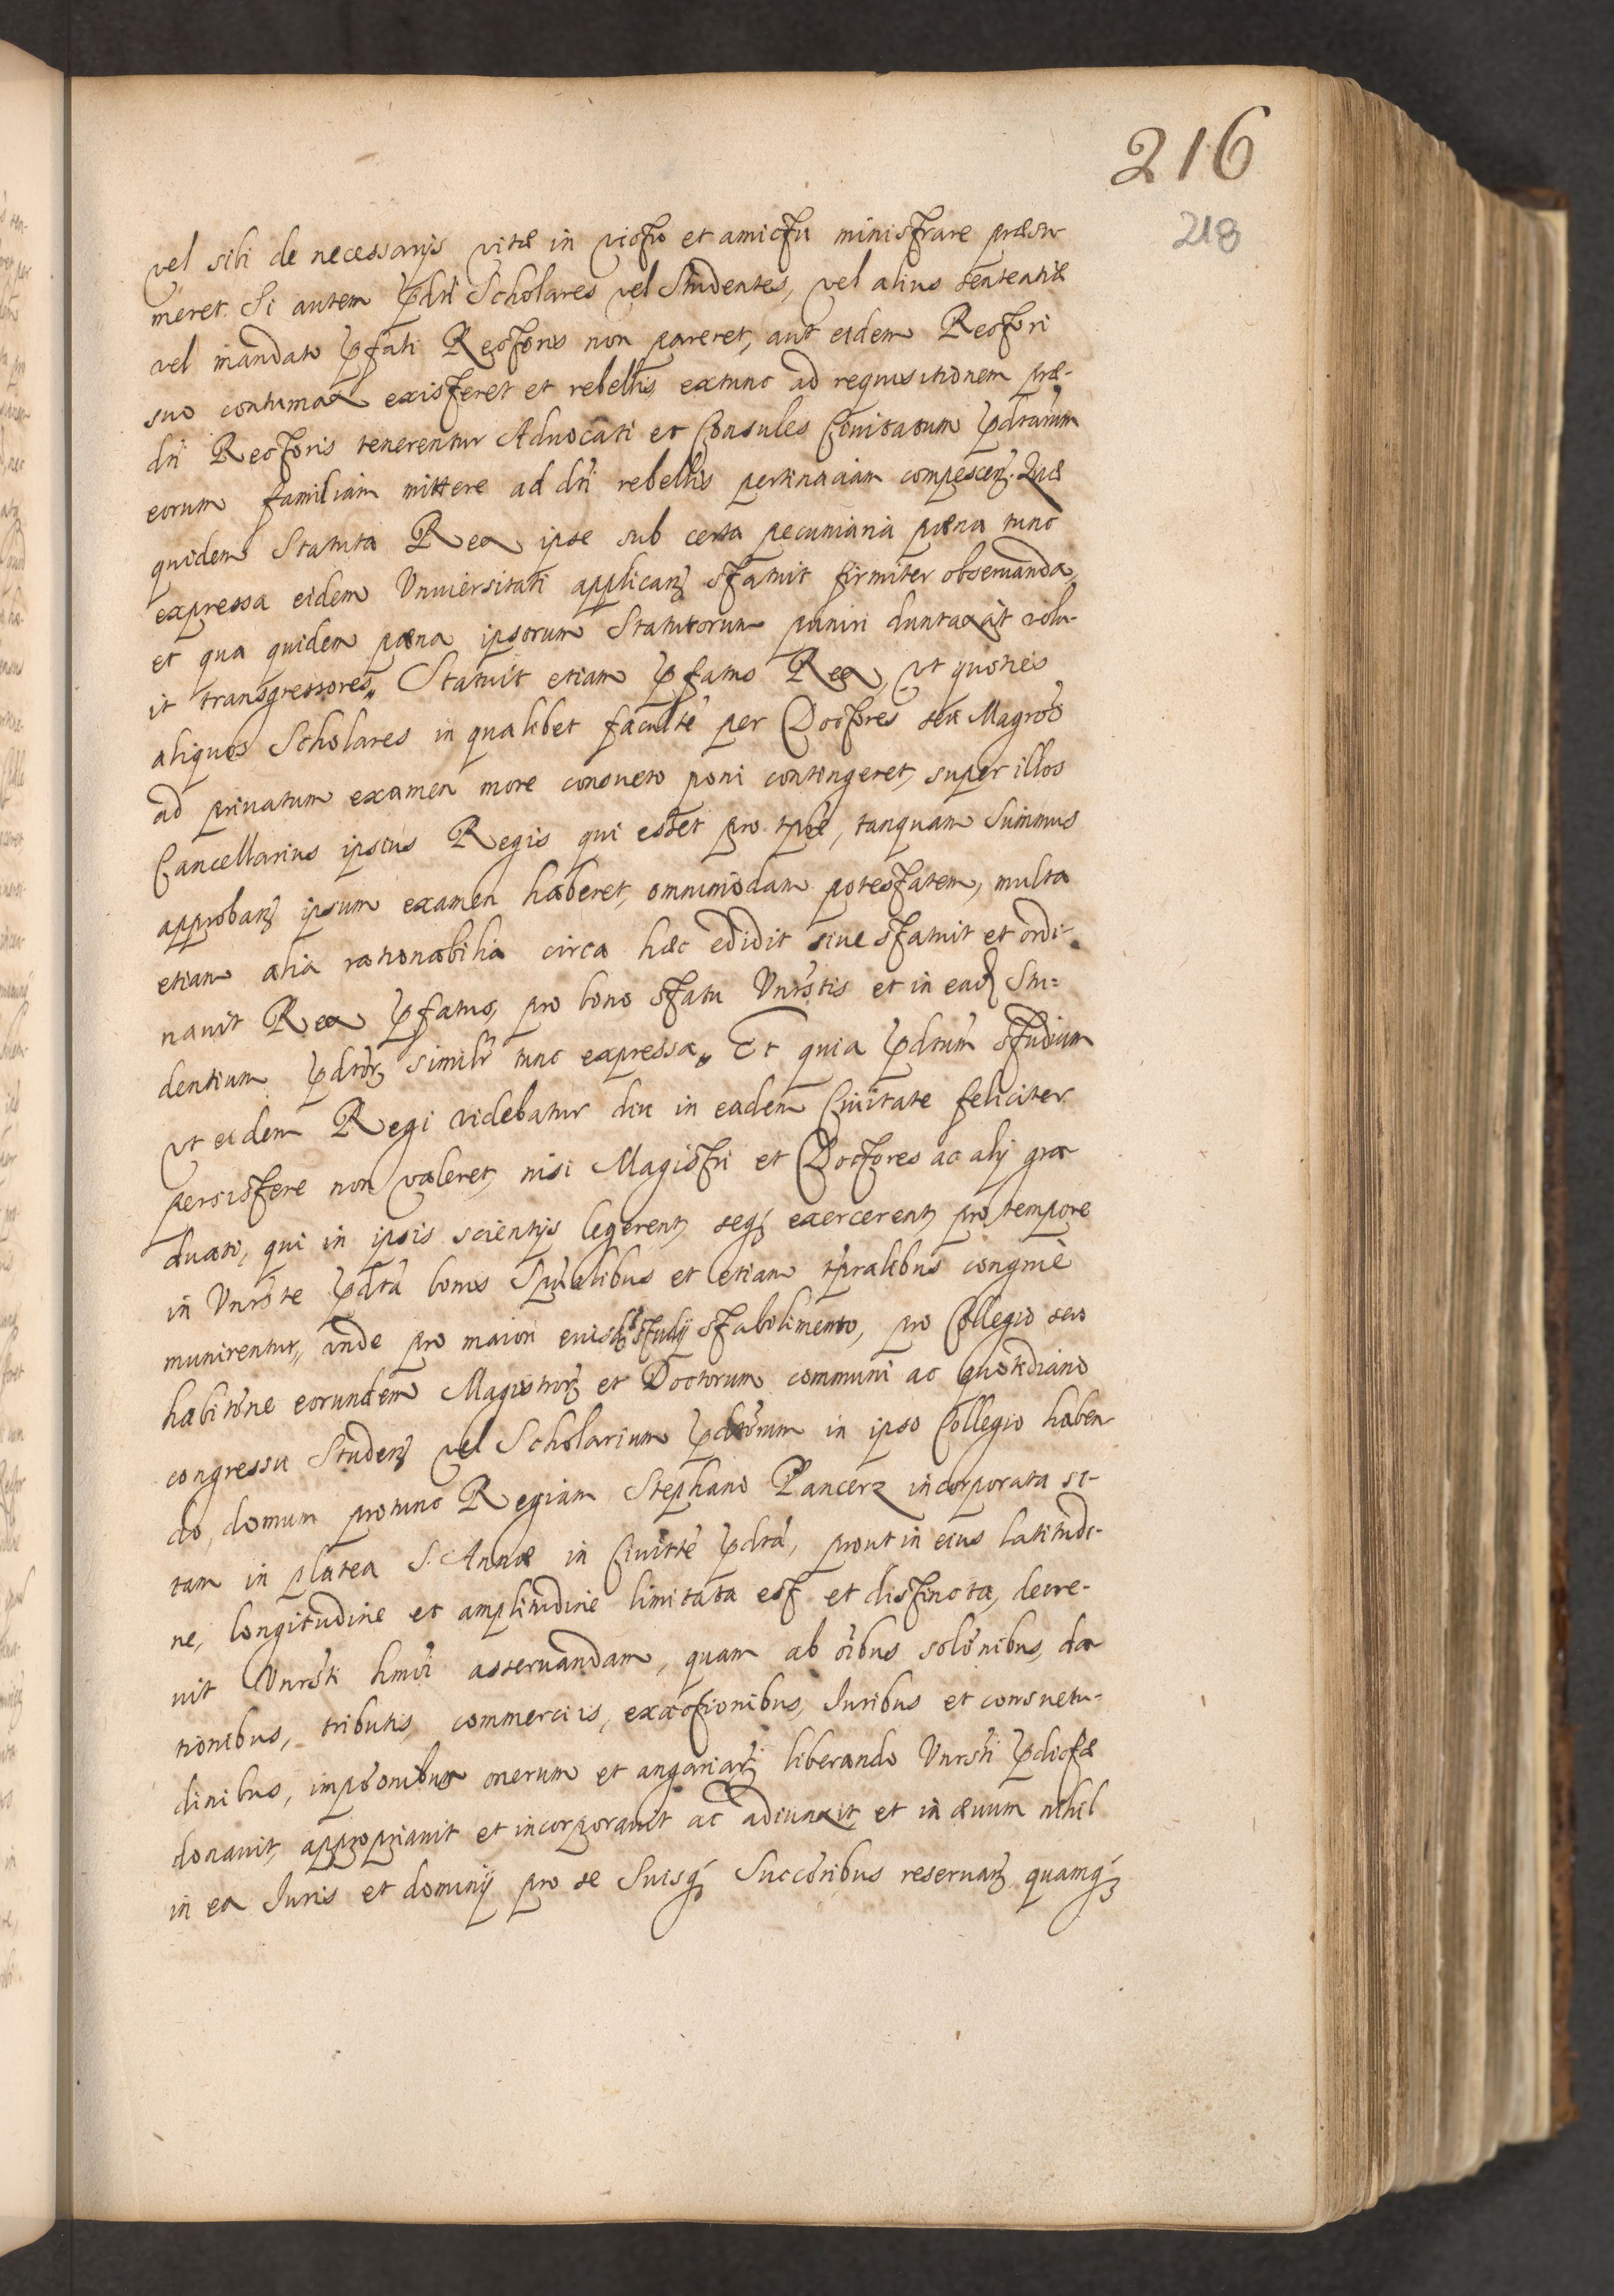 216
218
vel sibi de necessarijs vitæ in victu et amictu ministrare præsu-
meret. Si autem p̱dti Scholares vel Studentes, vel alius sententiæ
vel mandato p̱fati Rectoris non pareret, aut eidem Rectori
suo contumax existeret et rebellis, extunc ad requisitionem præ-
dti Rectoris tenerentur Aduocati et Consules Ciuitatum p̱dtarum
eorum familiam mittere ad dti rebellis pertinaciam compescenꝫ. Quæ
quidem Statuta Rex ipse sub certa pecuniaria pæna tunc
expressa eidem Vniuersitati applicanꝫ statuit firmiter obseruanda,
et qua quidem pæna ipsorum Statutorum puniri duntaxàt volu-
it transgressores,, Statuit etiam p̱fatus Rex, vt quoties
aliquos Scholares in qualibet faculte per Doctores seu Magros
ad priuatum examen more consueto poni contingeret, super illos
Cancellarius ipsius Regis qui esset pro tpre, tanquam Summus
approbanꝫ ipsum examen haberet, omnimodam potestatem, multa
etiam alia rationabilia circa hæc edidit siue statuit et ordi-
nauit Rex p̱fatus, pro bono statu Vnrstis et in eadꝫ Stu=
dentium p̱dtorꝫ similr tunc expressa,, Et quia p̱dtum studium
vt eidem Regi videbatur diu in eadem Ciuitate feliciter
persistere non valeret, nisi Magistri et Doctores ac alij gra
duati, qui in ipsis scientijs legerent, seqꝫ exercerent, pro tempore
in Vnrste p̱dta bonis Spualibus et etiam tpralibus congruè
munirentur,, inde pro maiori eiusdꝫ studij stabolimento, pro Collegio seu
habitone eorundem Magistrorꝫ et Doctorum communi ac quotidiano
congressu Studenꝫ vel Scholarium p̱dtorum in ipso Collegio haben
do, domum protunc Regiam Stephano Pancerz incorporata si-
tam in platea S. Annæ in Ciuitte p̱dta, prout in eius latitudi-
ne, longitudine et amplitudine limitata est et distincta, decre-
uit Vnrsti hmoi asseruandam, quam ab oibus solonibus, da
tionibus, tributis, commerciis, exactionibus, Iuribus et consuetu-
dinibus, imposonibus onerum et angariarꝫ liberando Vnrsti p̱dictæ
donauit, appropriauit et incorporauit ac adiunxit, et in æuum nihil
in ea Iuris et dominij pro se Suisqꝫ Succoribus reseruanꝫ, quamqꝫ